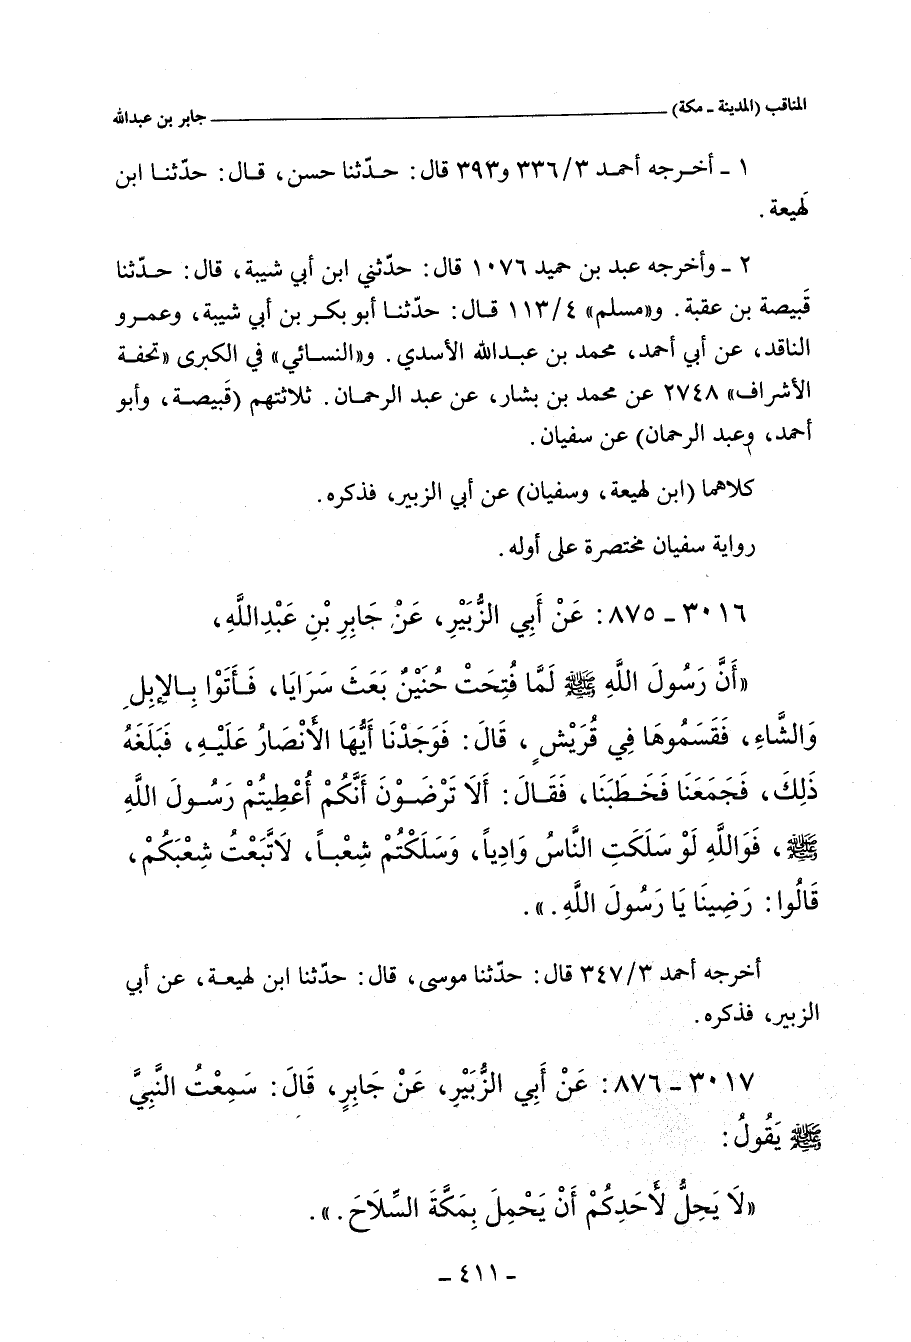 المناقب (المدينة ـ مكة) ــــــــــــــــ جابر بن عبدالله
١ ـ أخرجه أحمد ٣٣٦/٣ و٣٩٣ قال: حدّثنا حسن، قال: حدّثنا ابن
لَهيعة.
٢ ـ وأخرجه عبد بن حميد ١٠٧٦ قال: حدّثني ابن أبي شيبة، قال: حدّثنا
قَبيصة بن عقبة. و«مسلم» ١١٣/٤ قال: حدّثنا أبو بكر بن أبي شيبة، وعمرو
الناقد، عن أبي أحمد، محمد بن عبدالله الأسدي. و«النسائي» في الكبرى «تحفة
الأشراف» ٢٧٤٨ عن محمد بن بشار، عن عبد الرحمان. ثلاثتهم (قَبيصة، وأبو
أحمد، وعبد الرحمان) عن سفيان.
كلاهما (ابن لهيعة، وسفيان) عن أبي الزبير، فذكره.
رواية سفيان مختصرة على أوله.
٣٠١٦ ـ ٨٧٥: عَنْ أَبِي الزُّبَيْرِ، عَنْ جَابِرِ بْنِ عَبْدِاللَّهِ،
«أَنَّ رَسُولَ اللَّهِ ﷺ لَمَّا فُتِحَتْ حُنَيْنٌ بَعَثَ سَرَايَا، فَأَتَوْا بِالإِبِلِ
وَالشَّاءِ، فَقَسَمُوهَا فِي قُرَيْشٍ، قَالَ: فَوَجَدْنَا أَيُّهَا الأَنْصَارُ عَلَيْهِ، فَبَلَغَهُ
ذَلِكَ، فَجَمَعَنَا فَخَطَبَنَا، فَقَالَ: أَلَا تَرْضَوْنَ أَنَّكُمْ أُعْطِيتُمْ رَسُولَ اللَّهِ
ﷺ، فَوَاللَّهِ لَوْ سَلَكَتِ النَّاسُ وَادِياً، وَسَلَكْتُمْ شِعْباً، لَاتَّبَعْتُ شِعْبَكُمْ،
قَالُوا: رَضِينَا يَا رَسُولَ اللَّهِ.».
أخرجه أحمد ٣٤٧/٣ قال: حدّثنا موسى، قال: حدّثنا ابن لهيعة، عن أبي
الزبير، فذكره.
٣٠١٧ ـ ٨٧٦: عَنْ أَبِي الزُّبَيْرِ، عَنْ جَابِرٍ، قَالَ: سَمِعْتُ النَّبِيَّ
ﷺ يَقُولُ:
«لَا يَحِلُّ لأَحَدِكُمْ أَنْ يَحْمِلَ بِمَكَّةَ السِّلَاحَ.».
ـ ٤١١ ـ